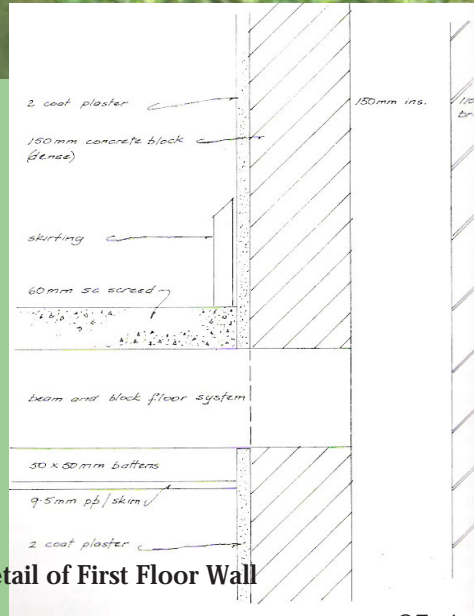 2 coat plaster
150mm ins.
110
150mm concrete block
(dense)
skirting
60mm sc screed
beam and block floor system
50 x 50mm battens
9.5mm pb/skim
2 coat plaster
etail of First Floor Wall